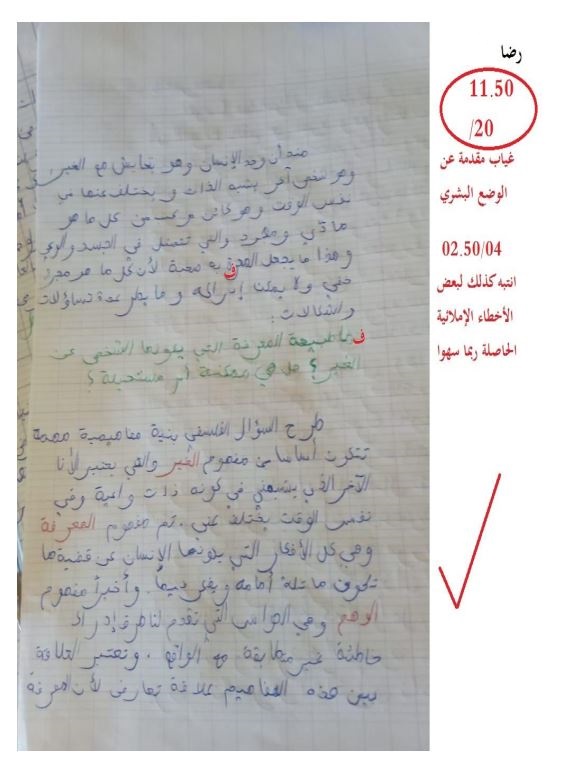 رضا
11.50
/20
غياب مقدمة عن
الوضع البشري
02.50/04
انتبه كذلك لبعض
الأخطاء الإملائية
الحاصلة ربما سهوا
منذ أن وجد الإنسان وهو يتعايش مع الغير
وهو شخص آخر يشبه الذات و يختلف عنها في
نفس الوقت وهو كائن مركب من كل ما هو
مادي ومجرد والتي تتمثل في الجسد والوعي
وهذا ما يجعل المعرفة به صعبة لأن كل ما هو مجرد
خفي ولا يمكن إدراكه و ما يطرح عدة تساؤلات
و اشكالات :
فما طبيعة المعرفة التي يكونها الشخص عن
الغير ؟ هل هي ممكنة أم مستحيلة ؟
طرح السؤال الفلسفي بنية مفاهيمية مهمة
تتكون أساسا من مفهوم الغير والذي يعتبر الأنا
الآخر الذي يشبهني في كونه ذات واعية وفي
نفس الوقت يختلف عني . ثم مفهوم المعرفة
وهي كل الأفكار التي يكونها الإنسان عن قضية ما
تكون ماثلة أمامه و . وأخيرا مفهوم
الوهم وهي الحواس التي تقدم لنا طرف إدراك
خاطئة غير متطابقة مع الواقع . وتعتبر العلاقة
بين هذه المفاهيم علاقة تعارض لأن المعرفة